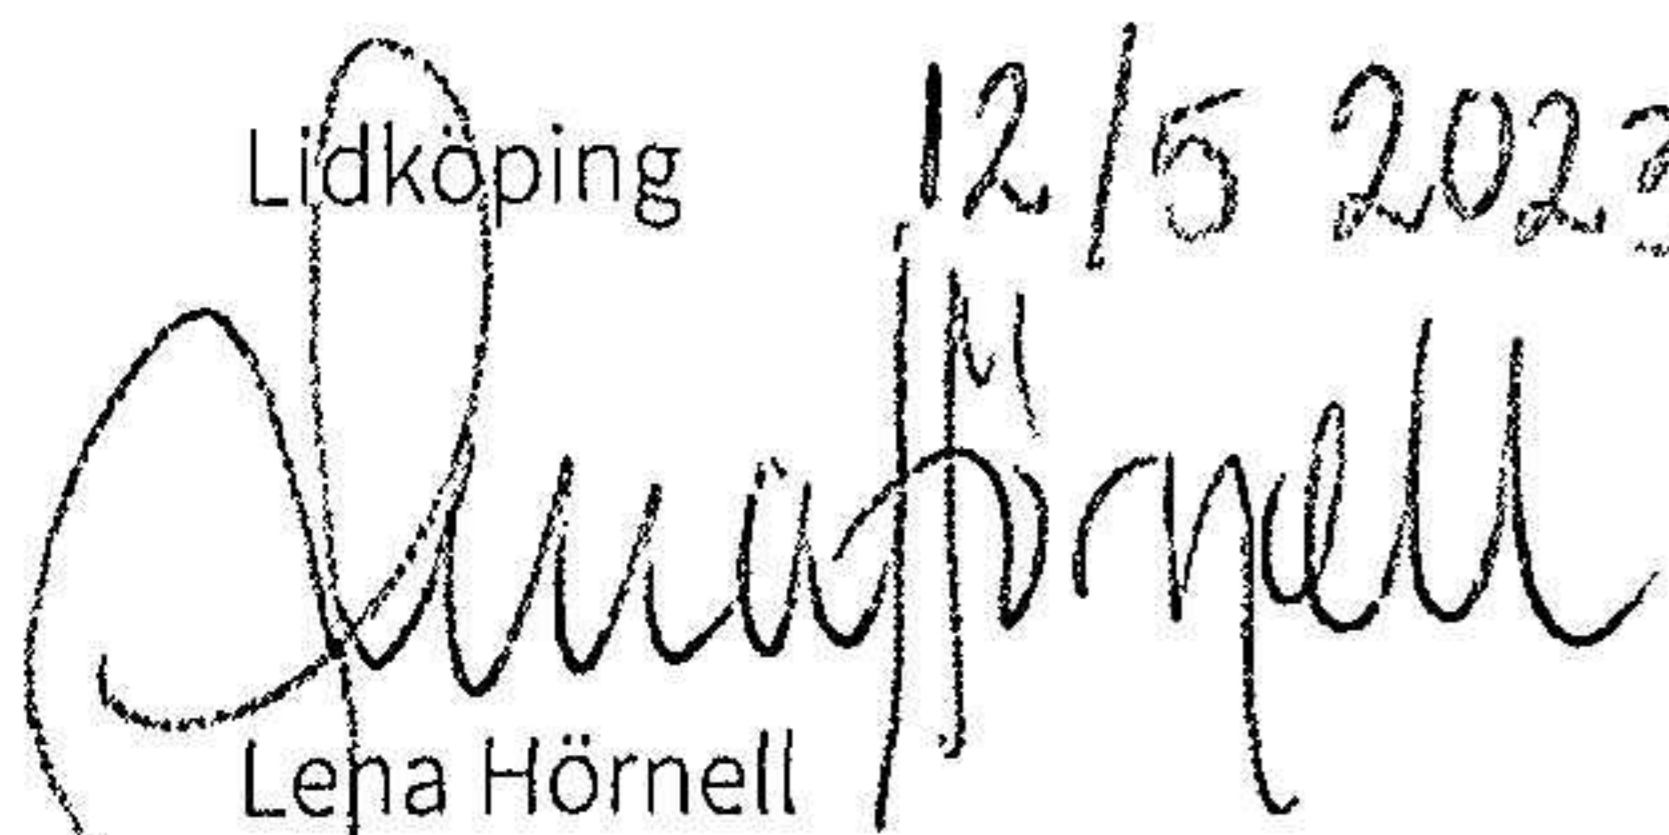 Lidköping 12/5 2023
Lena Hörnell
Lena Hörnell